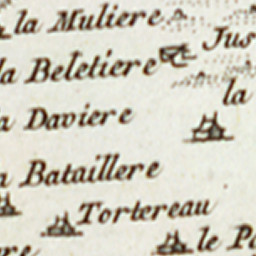 la Muliere
Jus
la Beletiere
la
a Daviere
a Bataillere
Tortereau
le Po
re